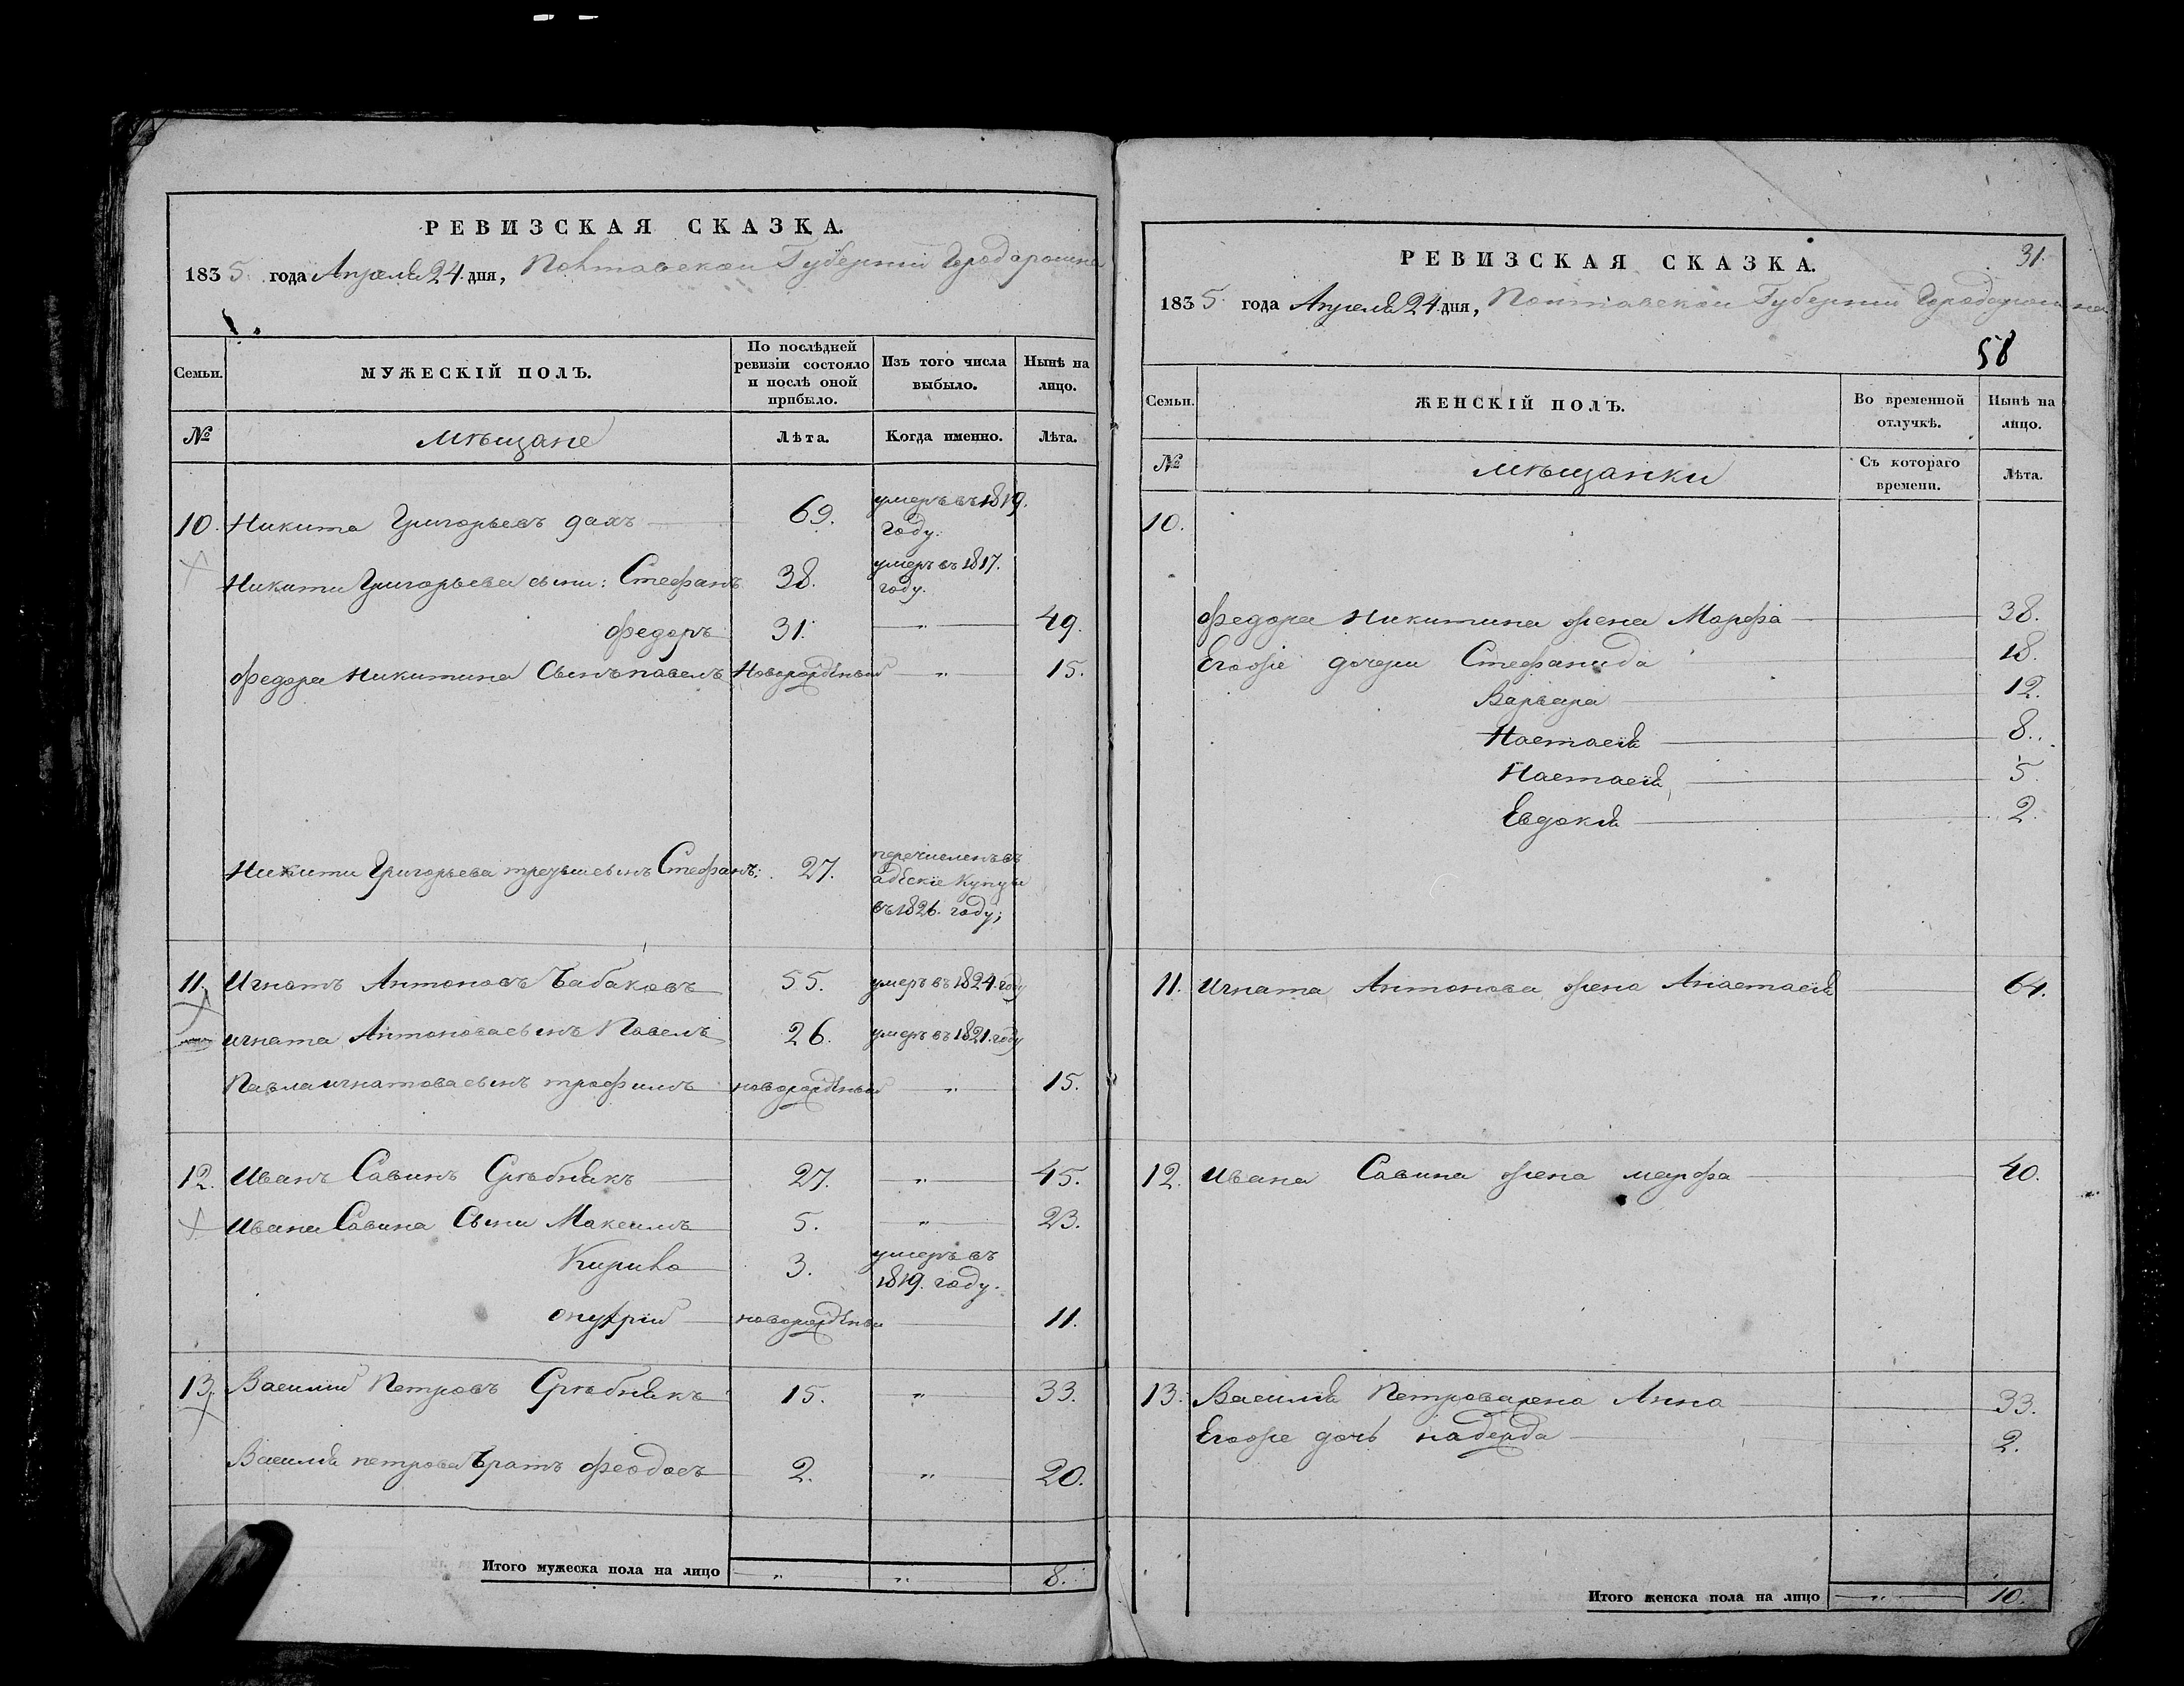 РЕВИЗСКАЯ СКАЗКА.
1835 года Апреля 24 дня, Полтавской Губернии Города ромна
Семьи.
МУЖЕСКІЙ ПОЛЪ.
По послѣдней ревизіи состояло и послѣ оной прибыло.
Изъ того числа выбыло.
Нынѣ на лицо.
№
мѣщане
Лѣта.
Когда именно.
Лѣта.
10. Никита Григорьевъ дахъ 69. умеръ въ 1819. году.
Никиты Григорьева сыны: Стефанъ 38. умеръ въ 1817. году.
Федоръ 31. " 49.
Федора Никитина Сынъ павелъ Новорождѣный " 15.
Никиты Григорьева третьи сынъ Стефанъ: 27. перечисленъ въ адескіе Купцы въ 1826. году;
11. Игнатъ Антоновъ Бабаковъ 55. умеръ въ 1824. году
игната Антонова сынъ Павелъ 26. умеръ въ 1821. году
Павла игнатова сынъ трофимъ новорождѣный " 15.
12. Иванъ Савинъ Срѣбнякъ 27. " 45.
Ивана Савина Сыны Максимъ 5. " 23.
Кирило 3. умеръ въ 1819. году.
онуфрій новорождѣны 11.
13. Василій Петровъ Срѣбнякъ 15. " 33.
Василія петрова братъ Феодосъ 2. " 20.
Итого мужеска пола на лицо " " 8.
31.
РЕВИЗСКАЯ СКАЗКА.
1835 года Апреля 24 дня, Полтавской Губернии Города ромна
58
Семьи.
ЖЕНСКІЙ ПОЛЪ.
Во временной отлучкѣ.
Нынѣ на лицо.
№
мѣщанки
Съ котораго времени.
Лѣта.
10.
Федора Никитина жена Марфа 38.
Егоже дочери Стефанида 18.
Варвара 12.
Настасія 8.
Настасія 5.
Евдокія 2.
11. Игната Антонова жена Анастасія 64.
12. Ивана Савина жена марфа 40.
13. Василія Петрова жена Анна 33.
Егоже дочь надежда 2.
Итого женска пола на лицо " 10.